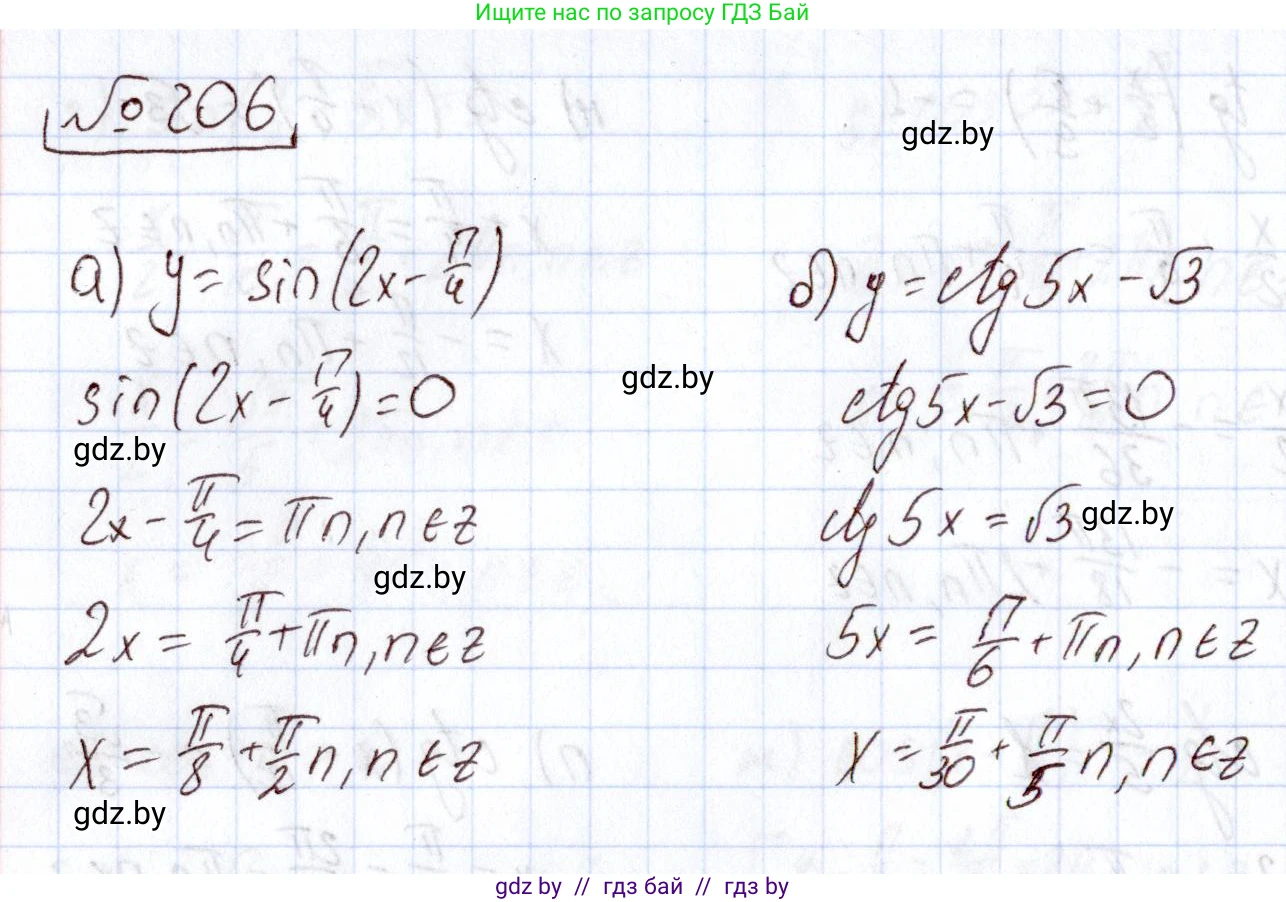 Ищите нас по запросу ГДЗ Бай
№ 206
gdz.by
а) y = sin(2x - π/4)
sin(2x - π/4) = 0
gdz.by
2x - π/4 = πn, n ∈ Z
gdz.by
2x = π/4 + πn, n ∈ Z
x = π/8 + π/2 n, n ∈ Z
gdz.by
б) y = ctg 5x - √3
gdz.by
ctg 5x - √3 = 0
ctg 5x = √3
gdz.by
5x = π/6 + πn, n ∈ Z
x = π/30 + π/5 n, n ∈ Z
gdz by // гдз бай // гдз by